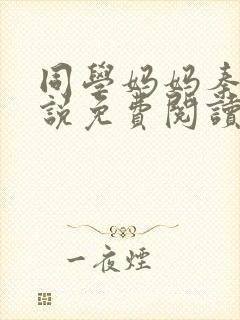 同學妈妈秦
說免費閱讀
一夜煙